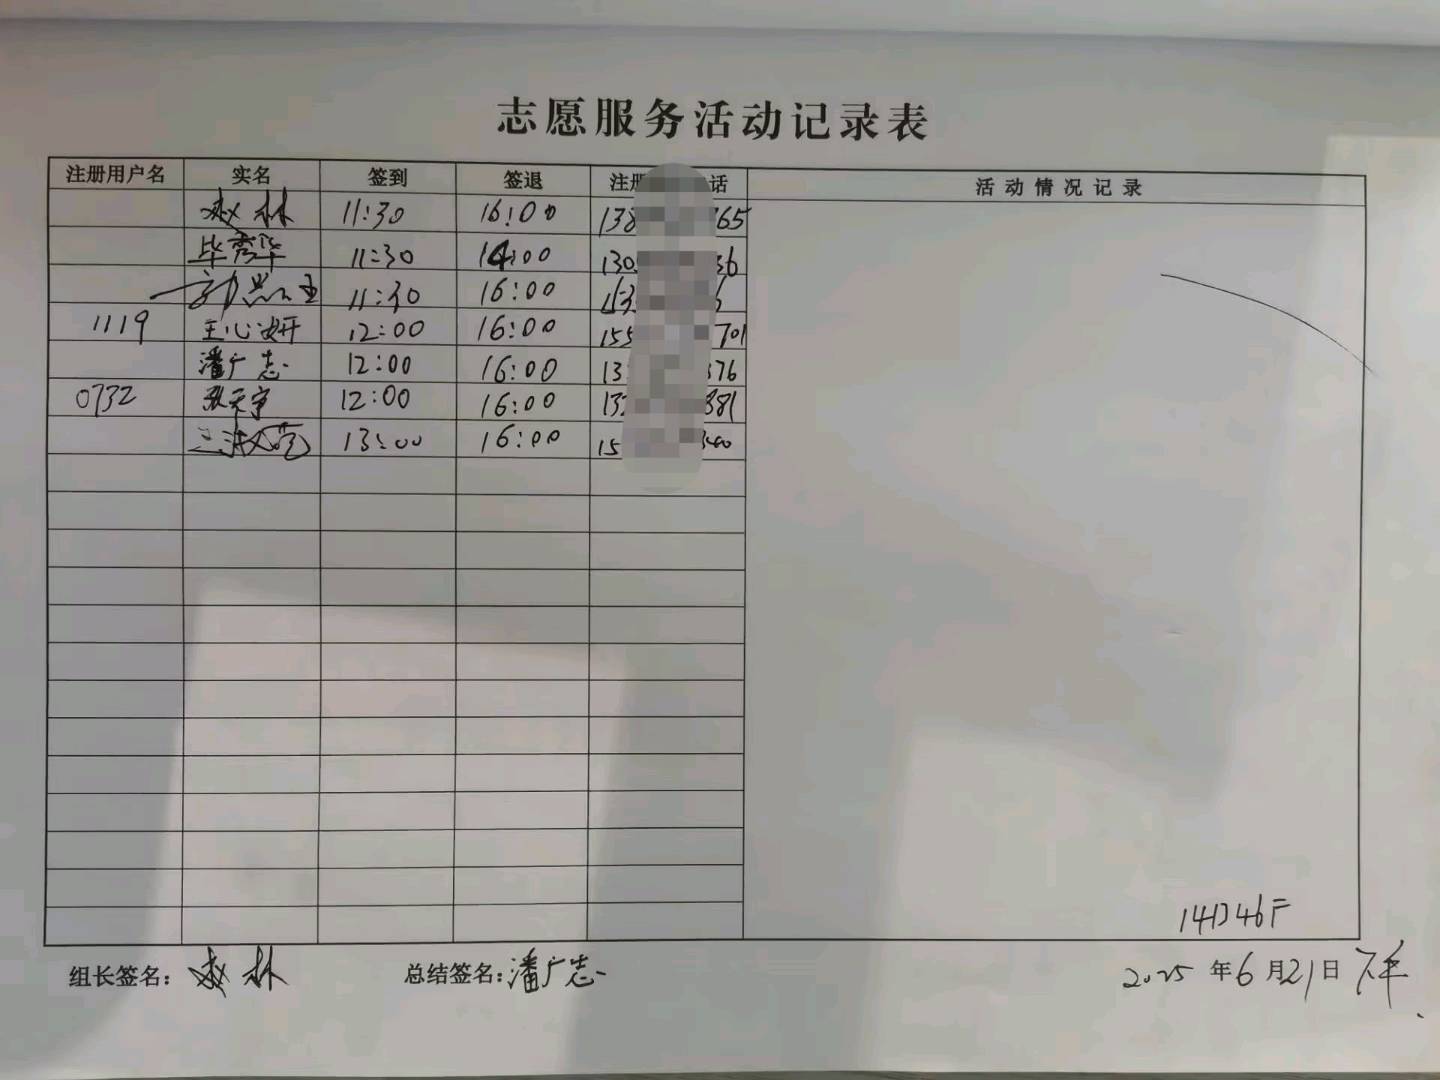 志愿服务活动记录表
注册用户名 实名 签到 签退 注册 话 活动情况记录
赵林 11:30 16:00 138 765
毕秀华 11:30 14:00 130 36
11:30 16:00
1119 王心妍 12:00 16:00 155 701
潘广志 12:00 16:00 13 376
0732 张天宇 12:00 16:00 13 381
13:00 16:00 15
14046F
组长签名: 赵林 总结签名: 潘广志 2025年6月21日 下午